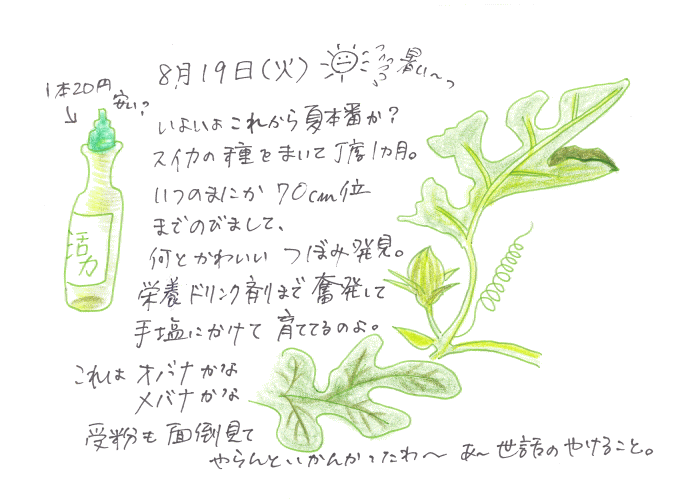 8月19日(火) 暑い〜っ
1本20円
安い?
活力
いよいよこれから夏本番か?
スイカの種をまいて丁度1カ月。
いつのまにか 70cm位
までのびまして、
何とかわいい つぼみ発見。
栄養ドリンク剤まで奮発して
手塩にかけて育ててるのよ。
これは オバナかな
メバナかな
受粉も面倒見て
やらんといかんかったわ〜 あ〜世話のやけること。